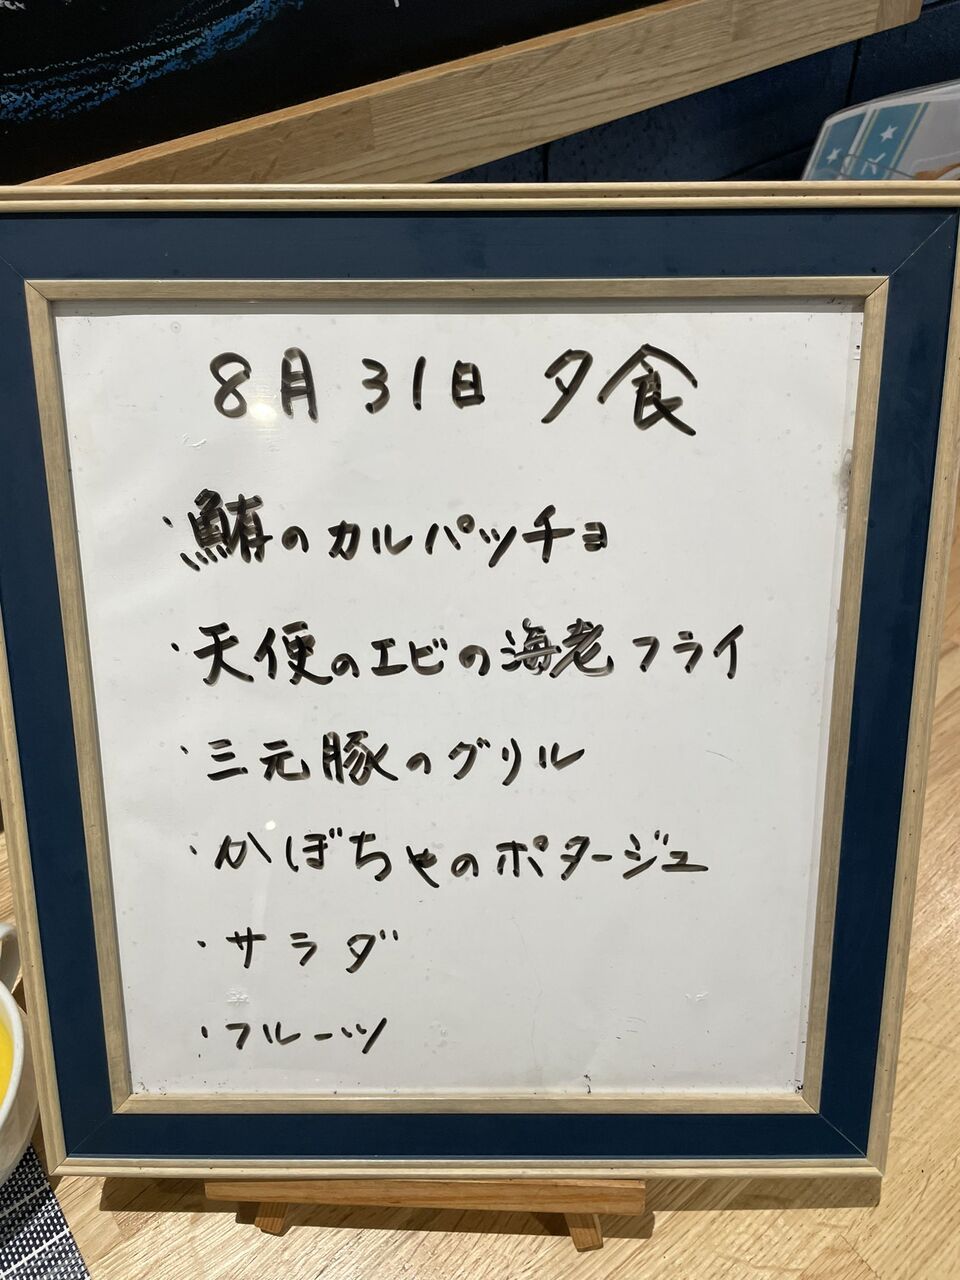 8月31日 夕食
・鮪のカルパッチョ
・天使のエビの海老フライ
・三元豚のグリル
・かぼちゃのポタージュ
・サラダ
・フルーツ